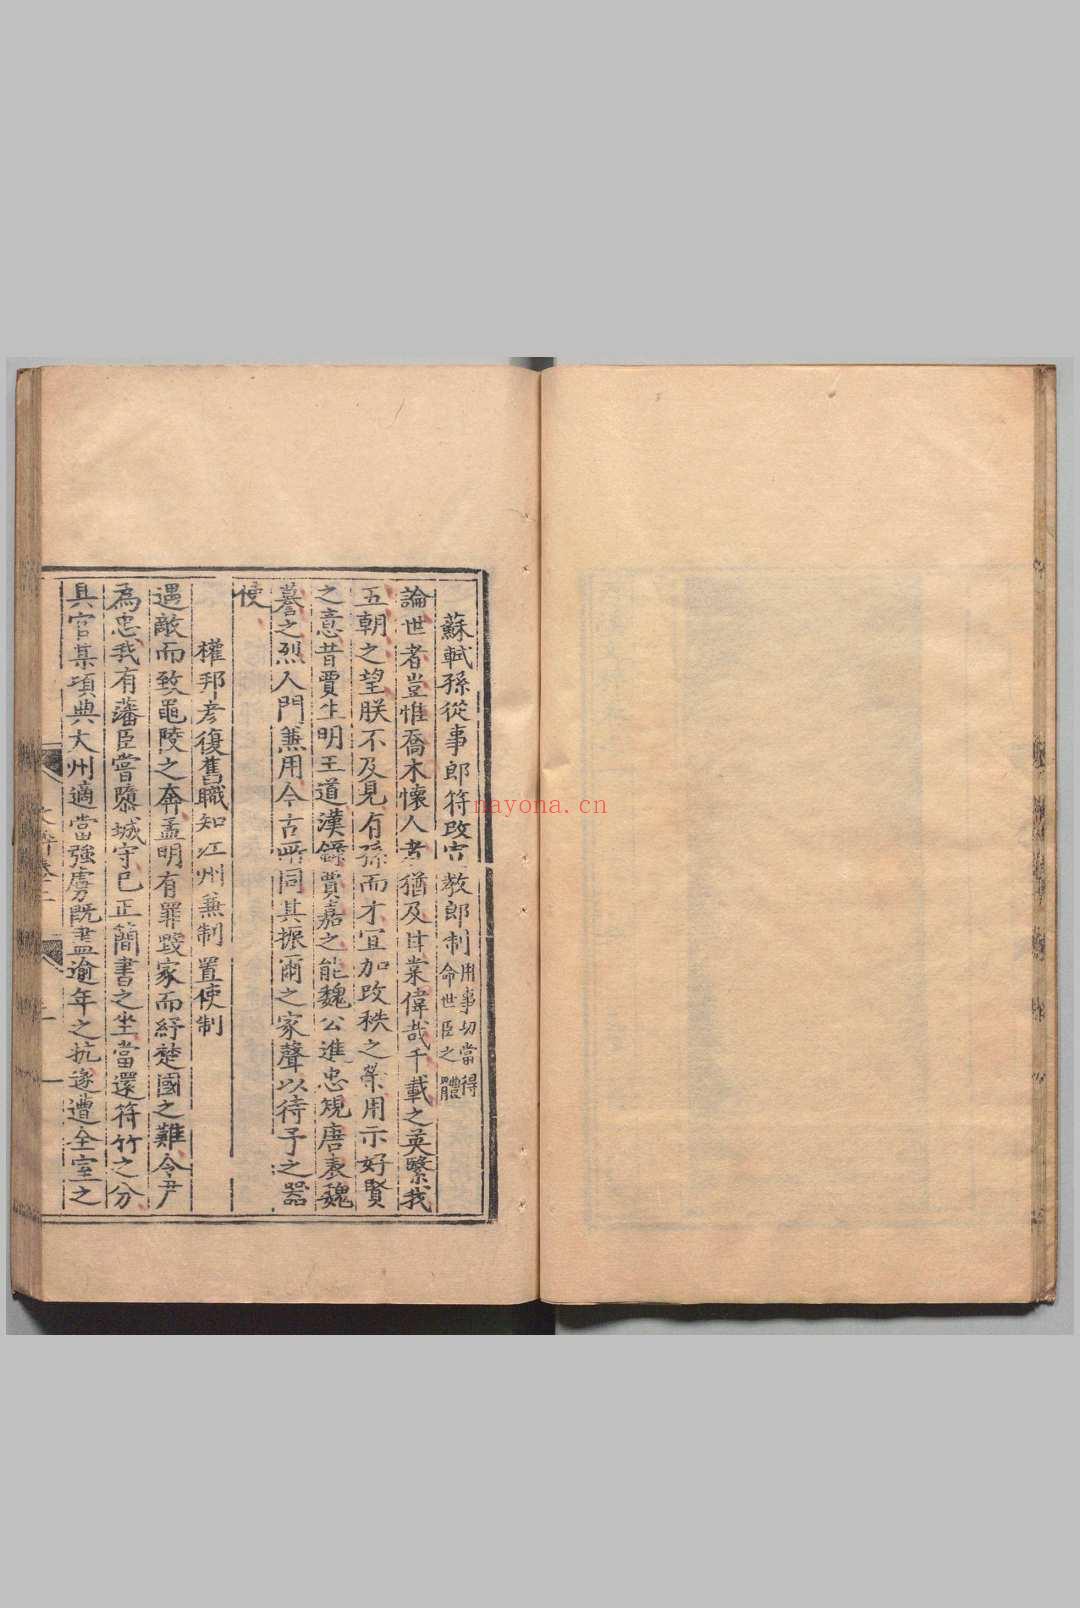 蘇軾孫從事郎符改宣教郎制用事切當得命世臣之體
論世者豈惟喬木懷人者猶及甘棠偉哉千載之英繄我
五朝之望朕不及見有孫而才宜加改秩之榮用示好賢
之意昔賈生明王道漢錄賈嘉之能魏公進忠規唐表魏
謩之烈人門兼用今古所同其振爾之家聲以待予之器
使
權邦彦復舊職知江州兼制置使制
遇敵而致黽陵之奔孟明有罪毀家而紓楚國之難令尹
為忠我有藩臣嘗隳城守已正簡書之坐當還符竹之分
具官某頃典大州適當強虜既盡逾年之抗遂遭全室之
nayona.cn